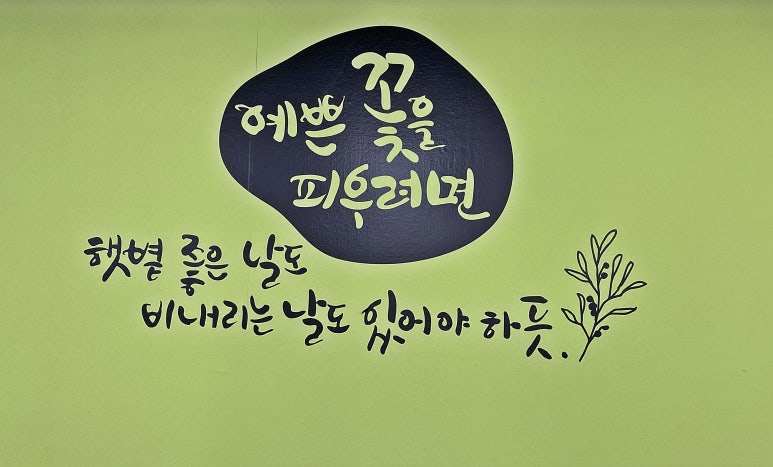 예쁜 꽃을
피우려면
햇볕 좋은 날도
비내리는 날도 있어야 하듯.